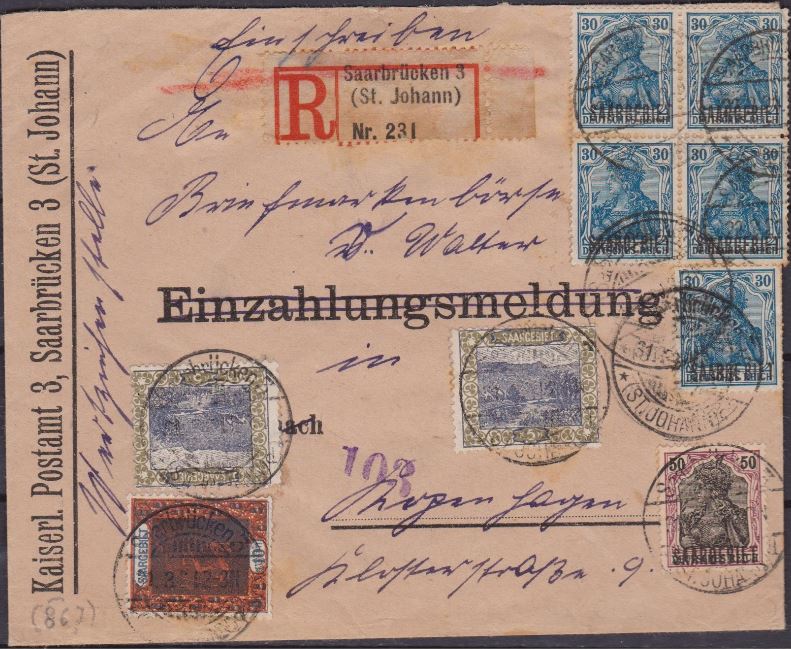 Einschreiben
R
Saarbrücken 3
(St. Johann)
Nr. 231
An
Briefmarkenbörse
W. Walter
Einzahlungsmeldung
in
ach
103
Kopenhagen
Klosterstraße 9.
Kaiserl. Postamt 3, Saarbrücken 3 (St. Johann)
(867)
30 30
SAARGEBIET
30 30
SAARGEBIET
30 30
SAARGEBIET
30 30
SAARGEBIET
30 30
SAARGEBIET
50 50
SAARGEBIET
SAARGEBIET
SAARGEBIET
SAARGEBIET
Saarbrücken
(ST. JOHANN)